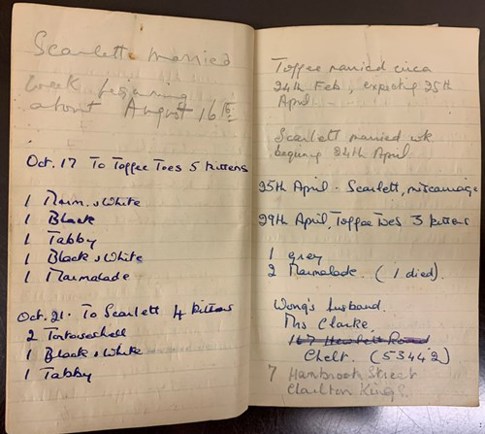 Scarlett married
week beginning
about August 16th
Oct. 17 To Toffee Toes 5 kittens
1 Marm. & White
1 Black
1 Tabby
1 Black & White
1 Marmalade
Oct. 21. To Scarlett 4 kittens
2 Tortoiseshell
1 Black & White
1 Tabby
Toffee married circa
24th Feb, expecting 25th
April
Scarlett married wk
beginning 24th April
25th April - Scarlett, miscarriage
29th April, Toffee Toes 3 kittens
1 grey
2 Marmalade. (1 died).
Wong's husband.
Mrs Clarke,
167 Hewlett Road
Chelt. (53442)
7 Hambrook Street
Charlton Kings.